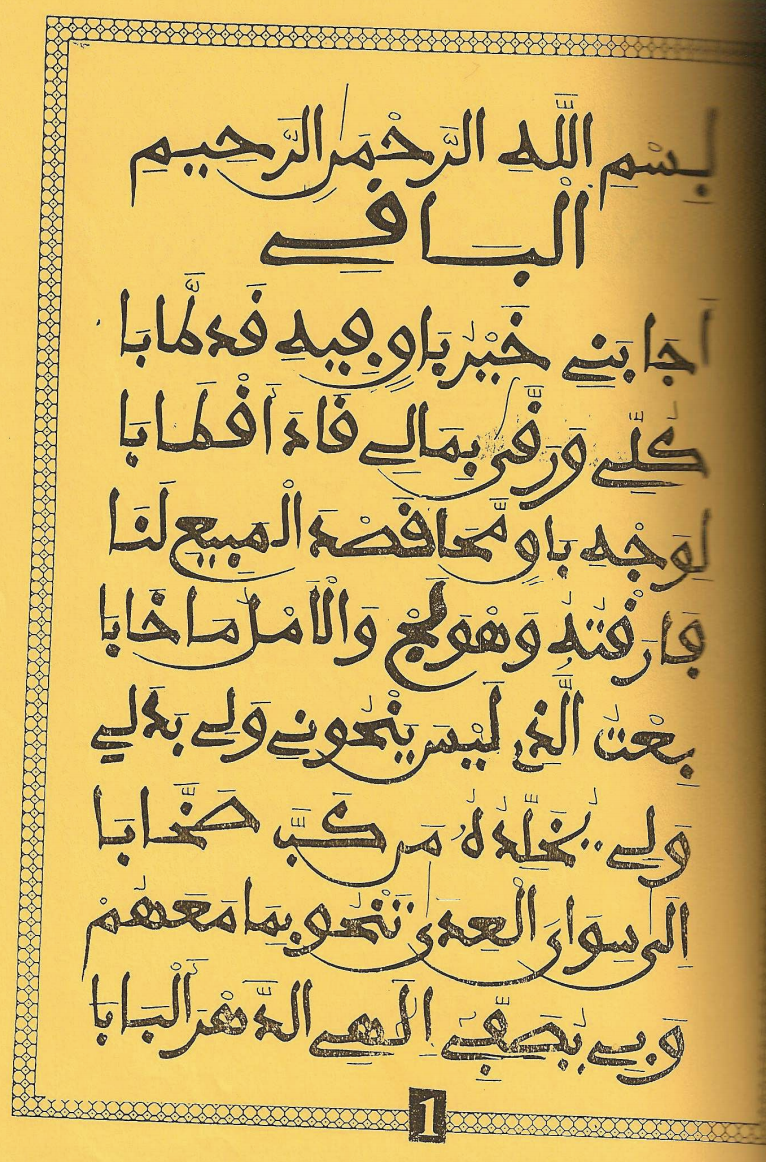 بِسْمِ اللَّهِ الرَّحْمَنِ الرَّحِيمِ
الْبَاقِي
أَجَابَنِي خَيْرُ بَاقٍ فِيهِ قَدْ طَابَا
كُلِّي وَرَقَّى بِمَالِي قَادَ أَقْطَابَا
لِوَجْهِ بَاقٍ مَحَا قَصْدَ الْمَبِيعِ لَنَا
فَارَقْتُهُ وَهْوَ وَالْأَمْلُ مَا خَابَا
بِعْتُ الَّذِي لَيْسَ يَنْحُونِي وَلِي بَدَلِي
وَلِي يُخَلِّدُهُ مَن كَبَّ صَخَّابَا
إِلَى سِوَايَ الْعِدَى تَنْحُو بِمَا مَعَهُمْ
وَبِي يُصَفِّي إِلَهِي الدَّهْرَ أَلْبَابَا
1